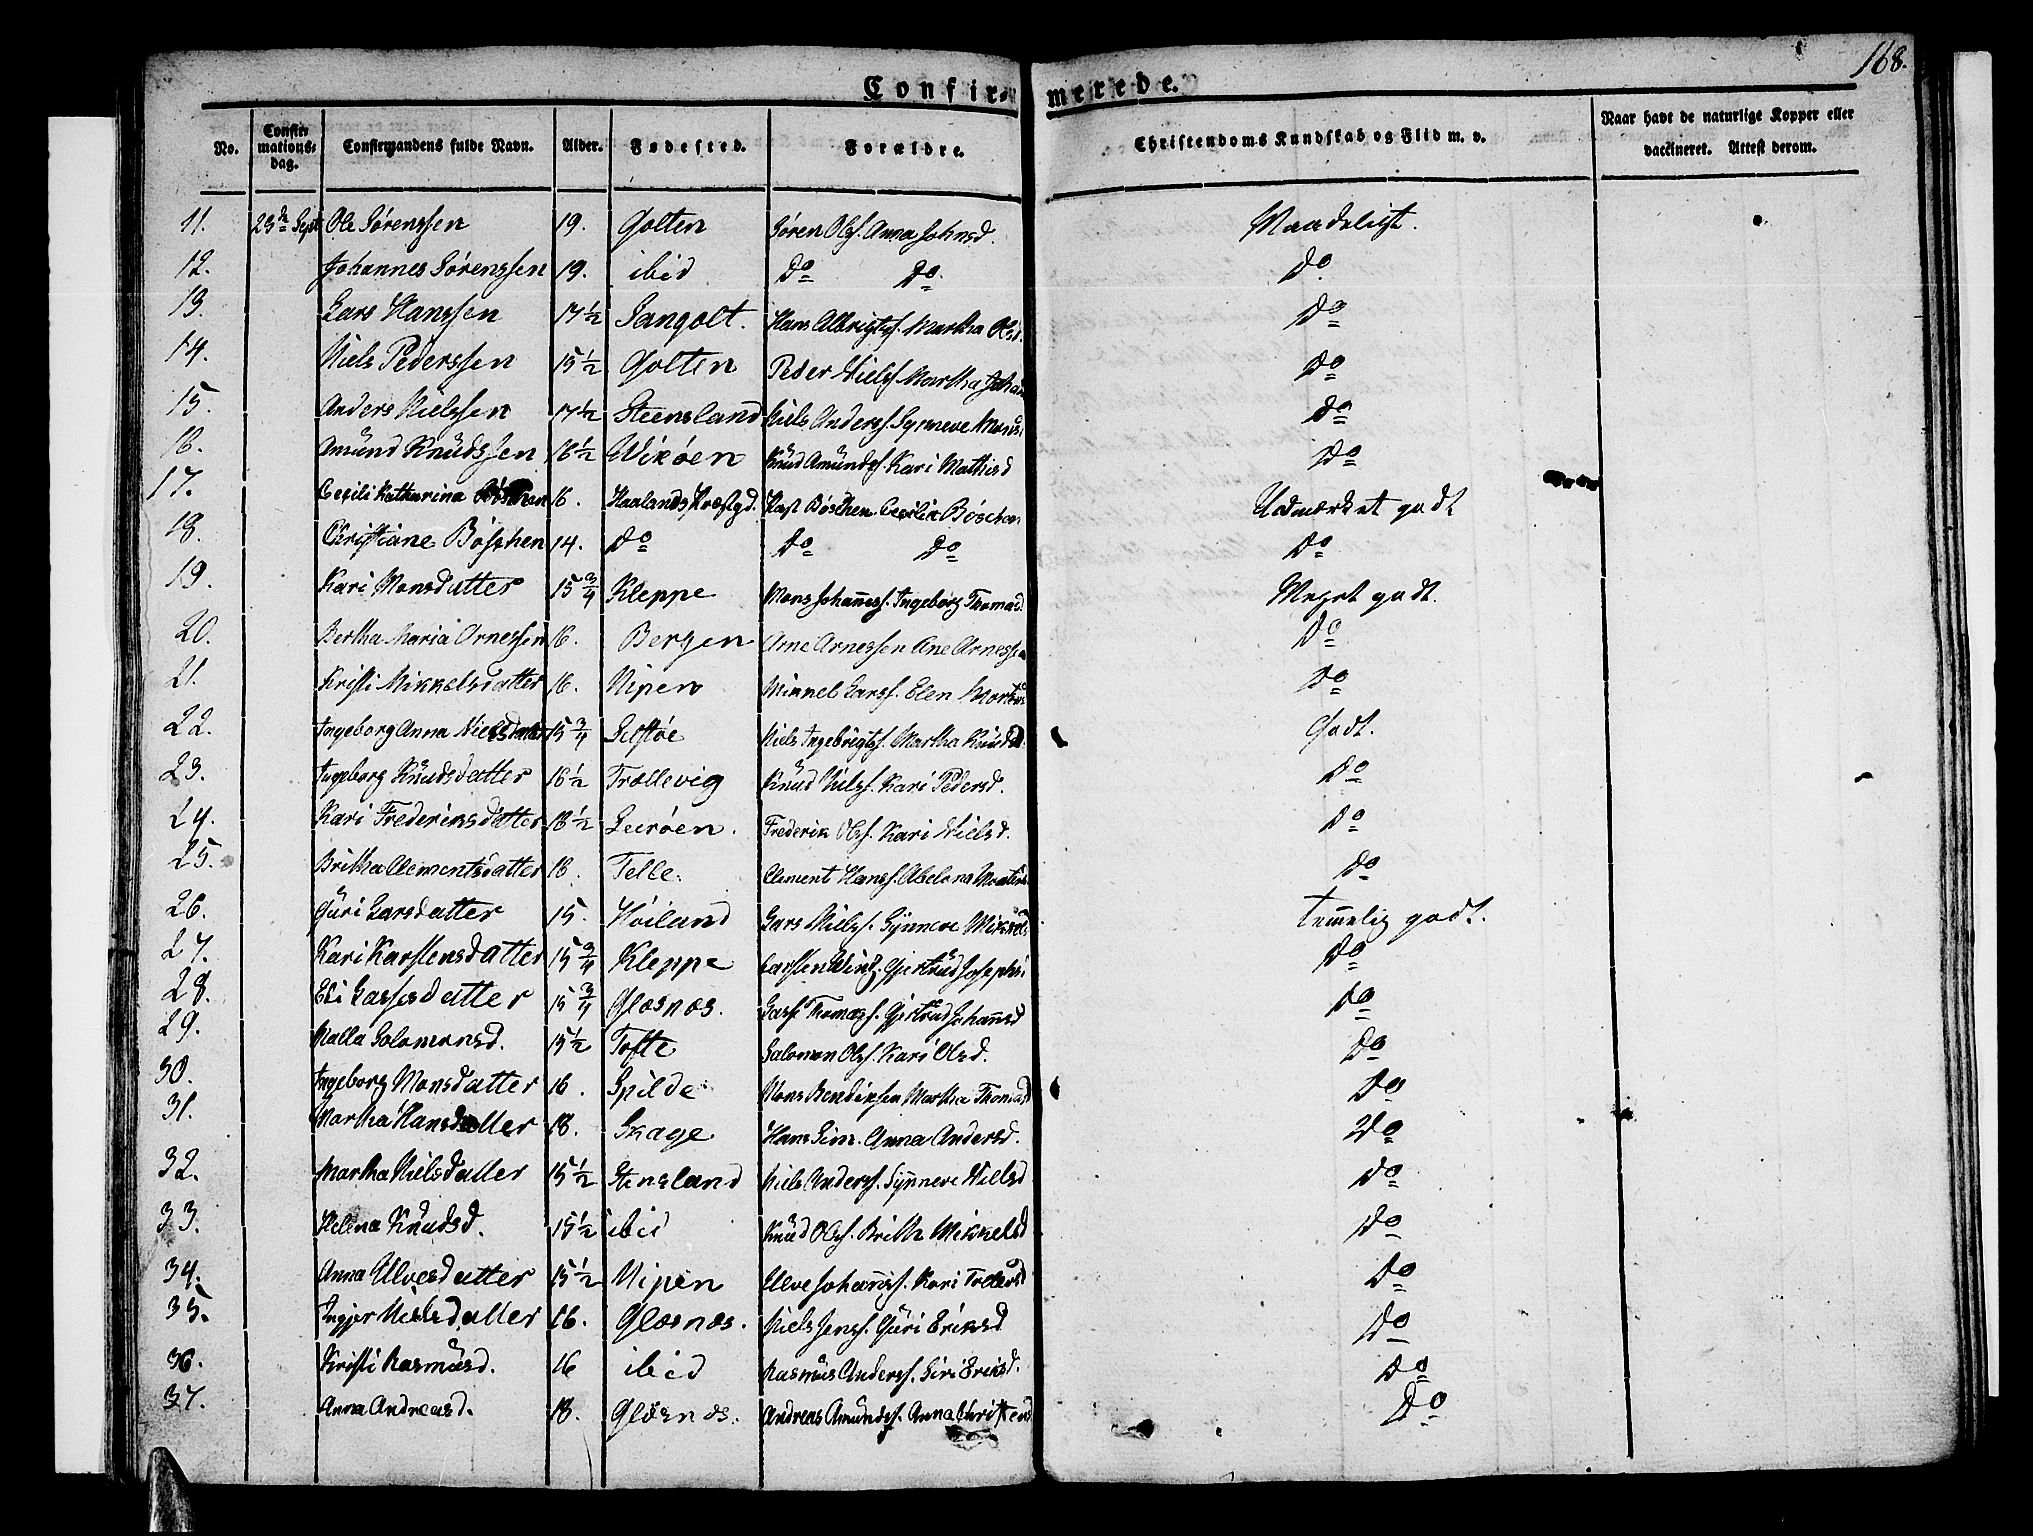 168.
Confirmerede.
No. Confirmationsdag. Confirmandens fulde Navn. Alder. Fødested. Forældre. Christendoms Kundskab og Flid m. v. Naar havt de naturlige Kopper eller vaccineret. Attest derom.
11. 23de Sept Ole Sørenssen 19. Golten Søren Ols. Anna Johnsd. Maadeligt.
12. Johannes Sørenssen 19. ibid Do Do. Do
13. Lars Hanssen 17 1/2 Sangolt. Hans Albrigts. Martha Olsd. Do
14. Niels Pederssen 15 1/2 Golten Peder Niels. Martha Do
15. Anders Nielssen 17 1/2 Steensland Niels Anders. Synneve Do
16. Amünd Knüdssen 16 1/2 Wikøen Knüd Amünds. Kari Mathisd Do
17. Cecili Katharina 16. Haalands Cecilia Udmærket godt
18. Christiane Böschen 14. Do Do Do Do
19. Kari Monsdatter 15 3/4 Kleppe Mons Johañess. Ingeborg Thomasd. Meget godt.
20. Bertha Maria Arnessen 16. Bergen Arne Arnessen Ane Arnessen Do
21. Kristi Mikkelsdatter 16. Nipen Mikkel Larss. Elen Do
22. Ingeborg Anna Nielsdatter 15 3/4 Selstøe Niels Ingebrigts. Martha Knüdsd. Godt.
23. Ingeborg Knüdsdatter 16 1/2 Trællevig Knüd Nils. Kari Pedersd. Do
24. Kari Frederiksdatter 18 1/2 Leerøen. Frederik Ols. Kari Nielsd. Do
25. Britha Clementsdatter 18. Telle. Clement Hanss. Abelona Do
26. Güri Larsdatter 15. Høiland Lars Niels. Synneve Temelig godt.
27. Kari Karstensdatter 15 3/4 Kleppe Carsten Gjertrud Do
28. Eli Lassesdatter 15 3/4 Glæsnæs. Lasse Thomæs. Gjertrud Johañsd Do
29. Malla Solomonsd. 15 1/2 Tofte Salomon Ols. Kari Olsd. Do
30. Ingeborg Monsdatter 16. Spilde Mons Bendixsen Martha Thomasd Do
31. Martha Hansdatter 18. Skage Hans Anna Andersd. Do
32. Martha Nielsdatter 15 1/2 Stensland Niels Anders. Synneve Nielsd Do
33. Helena Knudsd. 15 1/2 ibid Knüd Ols. Brith Mikkelsd Do
34. Anna Ulvesdatter 15 1/2 Nipen Ulve Johañs. Kari Do
35. Ingjer Nielsdatter 16. Glæsnæs. Niels Jens. Güri Eriksd Do
36. Kristi Rasmüsd. 16 ibid Rasmüs Anders. Siri Eriksd. Do
37. Anna Andreasd. 18. Glæsnæs. Andreas Amünds. Anna Do